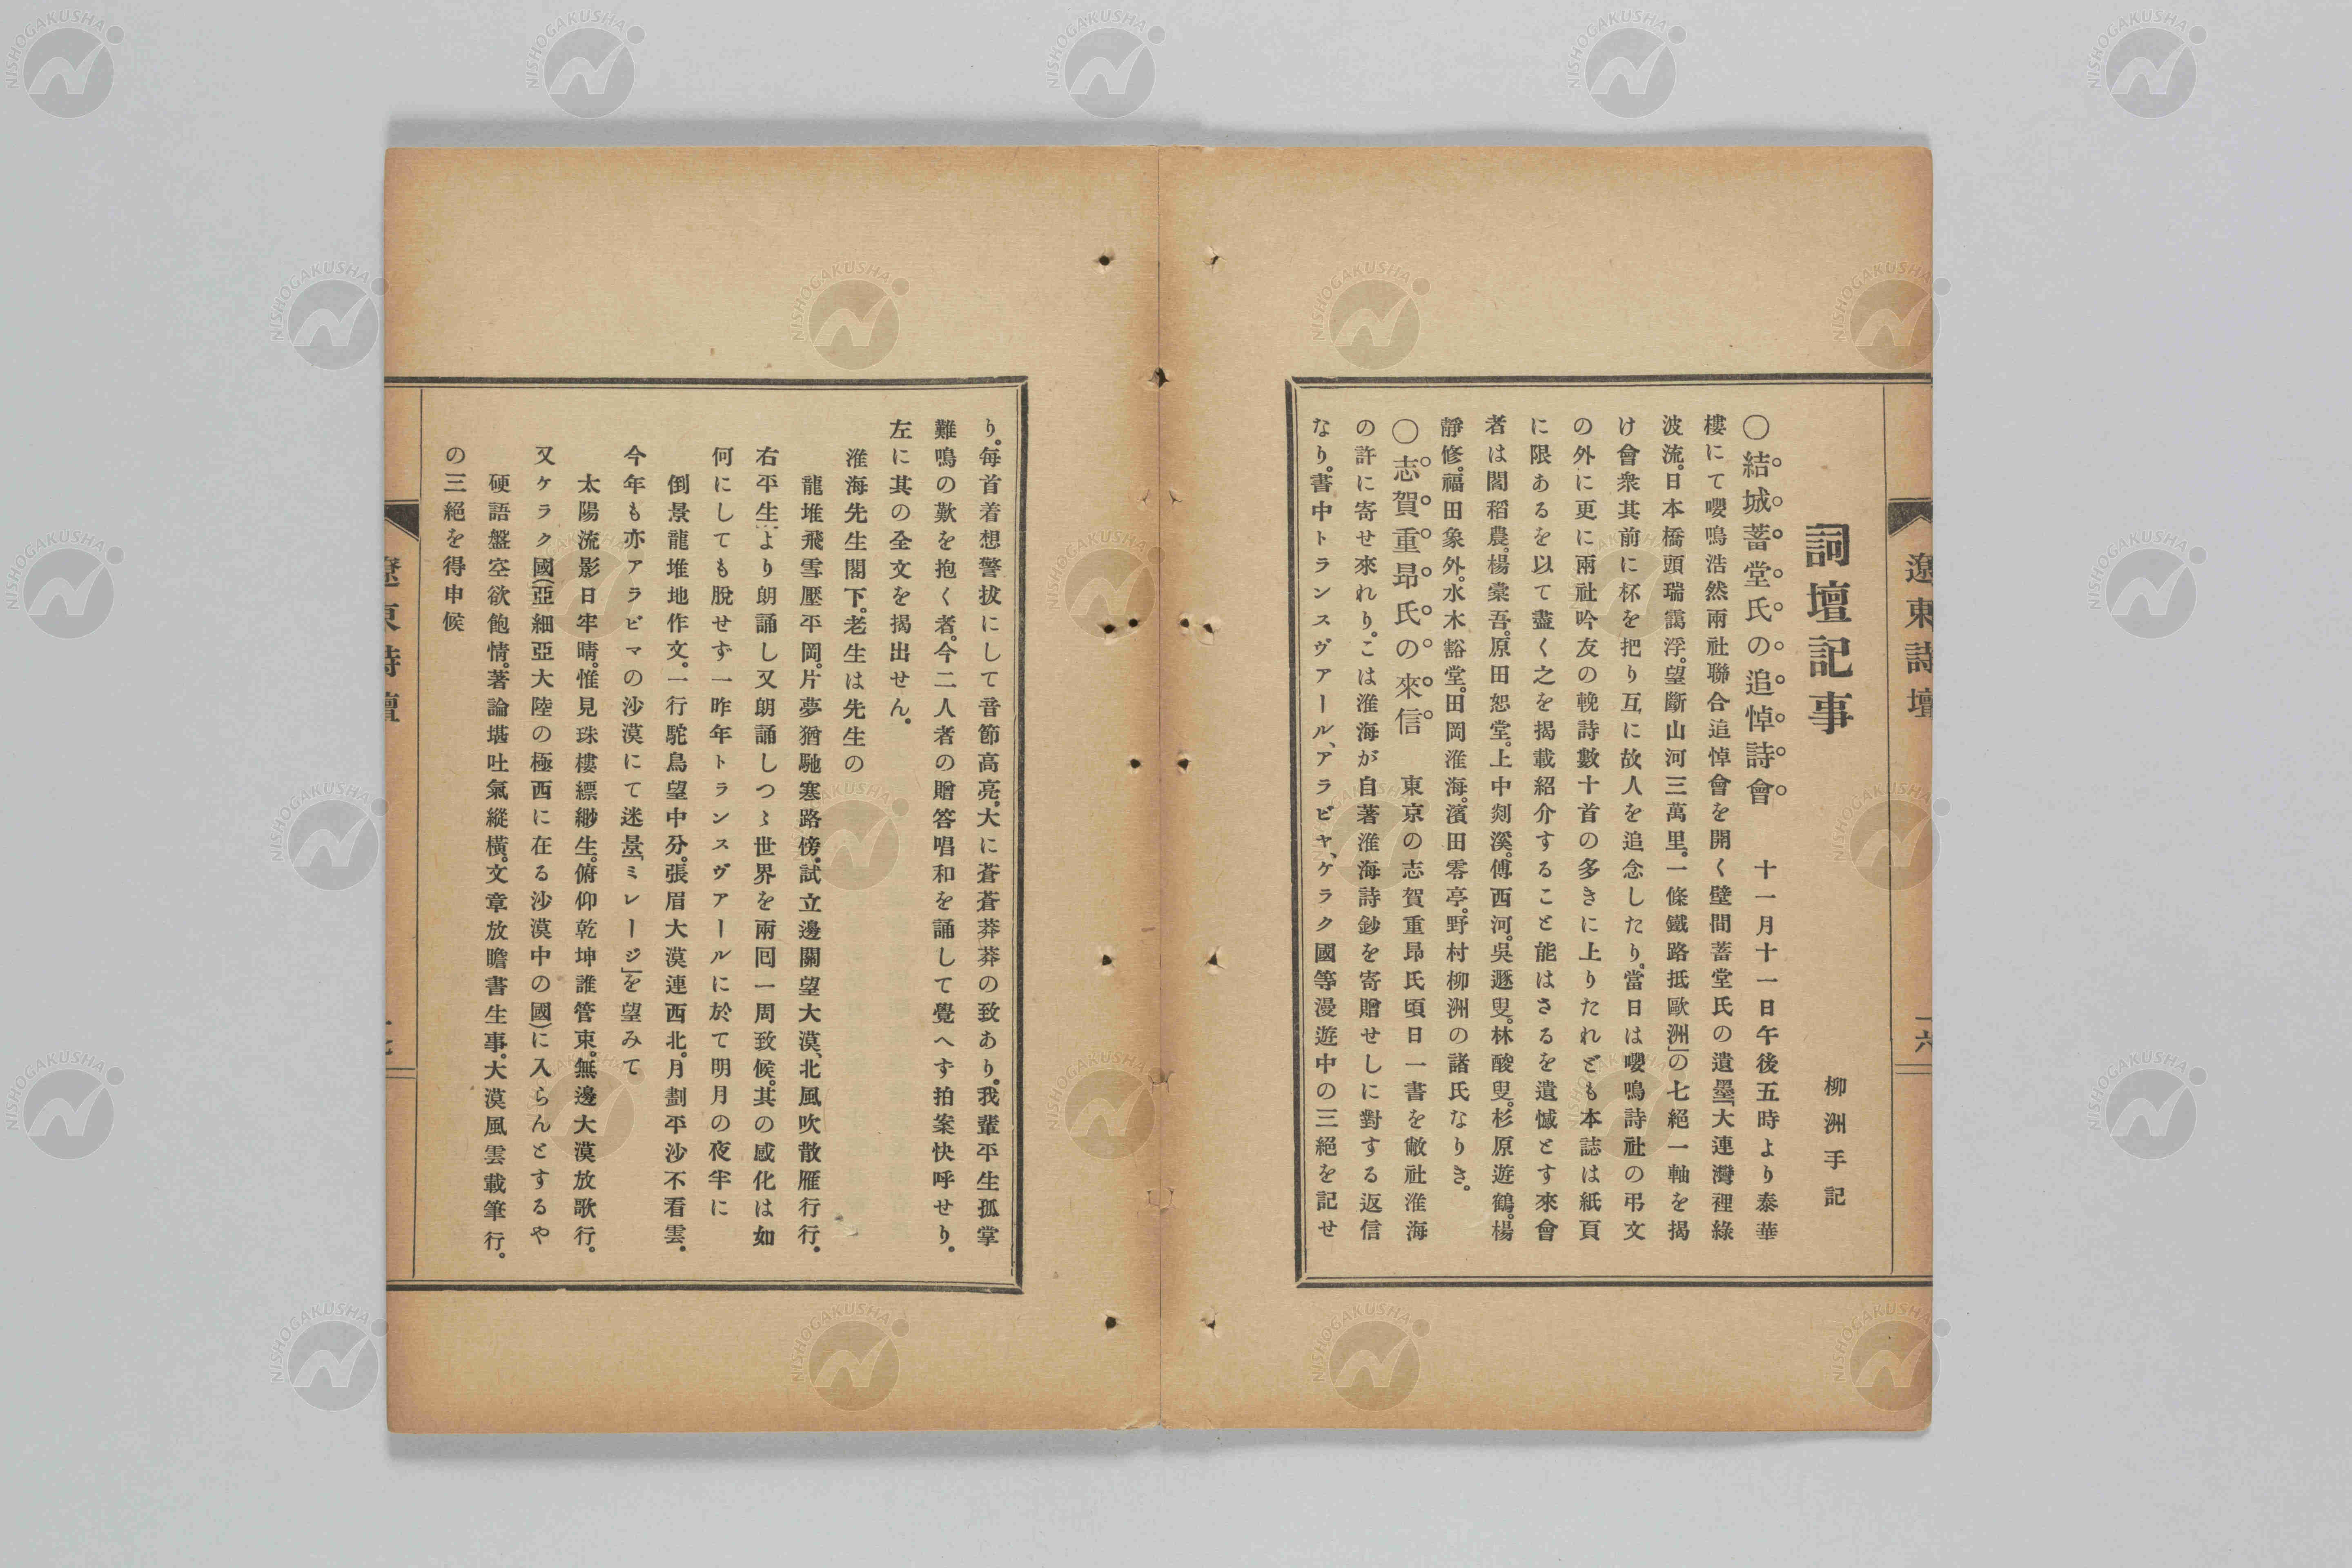 遼東詩壇
一六
詞壇記事
柳洲手記
〇結城蓄堂氏の追悼詩會　十一月十一日午後五時より泰華
樓にて嚶鳴浩然兩社聯合追悼會を開く壁間蓄堂氏の遺墨「大連灣裡綠
波流。日本橋頭瑞靄浮。望斷山河三萬里。一條鐵路抵歐洲」の七絕一軸を揭
け會衆其前に杯を把り互に故人を追念したり。當日は嚶鳴詩社の弔文
の外に更に兩社吟友の輓詩數十首の多きに上りたれども本誌は紙頁
に限あるを以て盡く之を揭載紹介すること能はさるを遺憾とす來會
者は閻稻農。楊槖吾。原田恕堂。上中剡溪。傅西河。吳遯叟。林酸叟。杉原遊鶴。楊
靜修。福田象外。水木豁堂。田岡淮海。濱田零亭。野村柳洲の諸氏なりき。
〇志賀重昂氏の來信　東京の志賀重昂氏頃日一書を敝社淮海
の許に寄せ來れり。こは淮海が自著淮海詩鈔を寄贈せしに對する返信
なり。書中トランスヴアール、アラビヤ、ケラク國等漫遊中の三絕を記せ
り。每首着想警拔にして音節高亮。大に蒼蒼莽莽の致あり。我輩平生孤掌
難鳴の歎を抱く者。今二人者の贈答唱和を誦して覺へす拍案快呼せり。
左に其の全文を揭出せん。
淮海先生閣下。老生は先生の
龍堆飛雪壓平岡。片夢猶馳塞路傍。試立邊關望大漠、北風吹散雁行行。
右平生より朗誦し又朗誦しつゝ世界を兩囘一周致候。其の感化は如
何にしても脫せず一昨年トランスヴアールに於て明月の夜半に
倒景龍堆地作文。一行駝鳥望中分。張眉大漠連西北。月劃平沙不看雲。
今年も亦アラビマの沙漠にて迷景「ミレージ」を望みて
太陽流影日牢晴。惟見珠樓縹緲生。俯仰乾坤誰管束。無邊大漠放歌行。
又ケラク國(亞細亞大陸の極西に在る沙漠中の國)に入らんとするや
硬語盤空欲飽情。著論堪吐氣縱橫。文章放瞻書生事。大漠風雲載筆行。
の三絕を得申候
遼東詩壇
一七
NISHOGAKUSHA